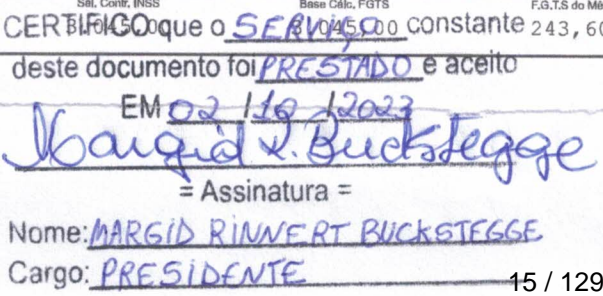 Sal. Contr. INSS Base Cálc. FGTS F.G.T.S do Mê
CERTIFICO que o SERVIÇO constante 243,60
deste documento foi PRESTADO e aceito
EM 02 / 10 / 2023
Margid R. Buckstegge
= Assinatura =
Nome: MARGID RINNERT BUCKSTEGGE
Cargo: PRESIDENTE
15 / 129